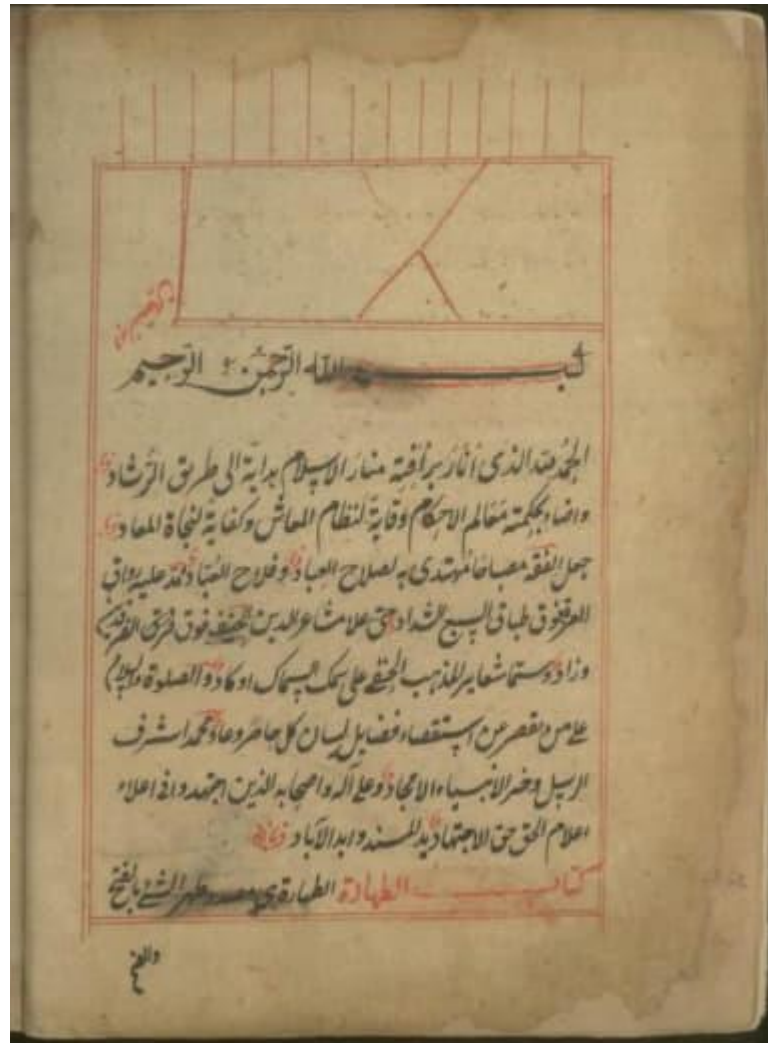 بسم الله الرحمن الرحيم
الحمد لله الذى أنار برأفته منار الاسلام هداية الى طريق الرشاد
واضاء بحكمته معالم الاحكام وقاية لنظام المعاش وكفاية لنجاة المعاد
جعل الفقه مصباحا يهتدى به لصلاح العباد وفلاح العباد
فوق طباق السبع الشداد حتى علا مشاعر الدين الحنيف فوق فرق
وزاد وسما شعاير المذهب الحنفى على سمك السماك اوكاد والصلوة والسلام
على من يقصر عن استقصاء فضايل لسان كل حاضر وعاد محمد اشرف
الرسل وخير الانبياء الامجاد وعلى اله واصحابه الذين اجتهدوا فى اعلاء
اعلام الحق حق الاجتهاد وابد الآباد
كتاب الطهارة الطهارة هى مصدر طهر الشئ بالفتح
والضم